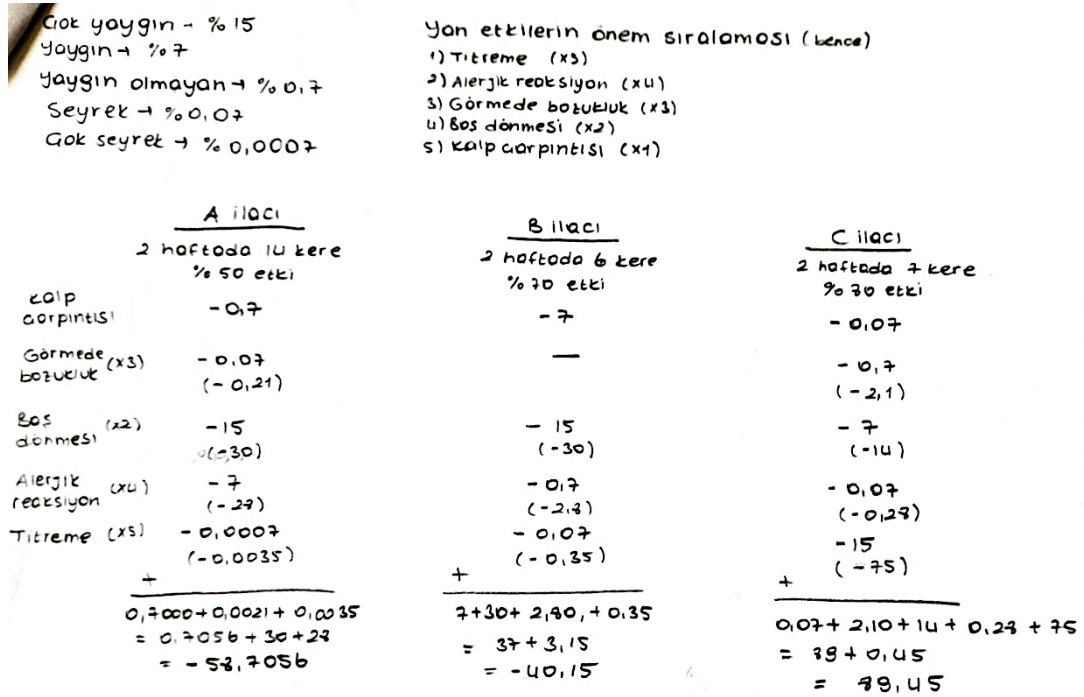 Çok yaygın - % 15
Yaygın → % 7
Yaygın olmayan → % 0,7
Seyrek → % 0,07
Çok seyrek → % 0,0007
Yan etkilerin önem sıralaması (bence)
1) Titreme (x5)
2) Alerjik reaksiyon (x4)
3) Görmede bozukluk (x3)
4) Baş dönmesi (x2)
5) Kalp çarpıntısı (x1)
A ilacı
2 haftada 14 kere
% 50 etki
B ilacı
2 haftada 6 kere
% 70 etki
C ilacı
2 haftada 7 kere
% 80 etki
Kalp çarpıntısı -0,7 -7 -0,07
Görmede bozukluk (x3) -0,07 — -0,7
(-0,21) (-2,1)
Baş dönmesi (x2) -15 -15 -7
(-30) (-30) (-14)
Alerjik reaksiyon (x4) -7 -0,7 -0,07
(-28) (-2,8) (-0,28)
Titreme (x5) -0,0007 -0,07 -15
(-0,0035) (-0,35) (-75)
+ + +
0,7000+0,0021+0,0035
= 0,7056+30+28
= -58,7056
7+30+2,80,+0,35
= 37+3,15
= -40,15
0,07+2,10+14+0,28+75
= 89+0,45
= 89,45